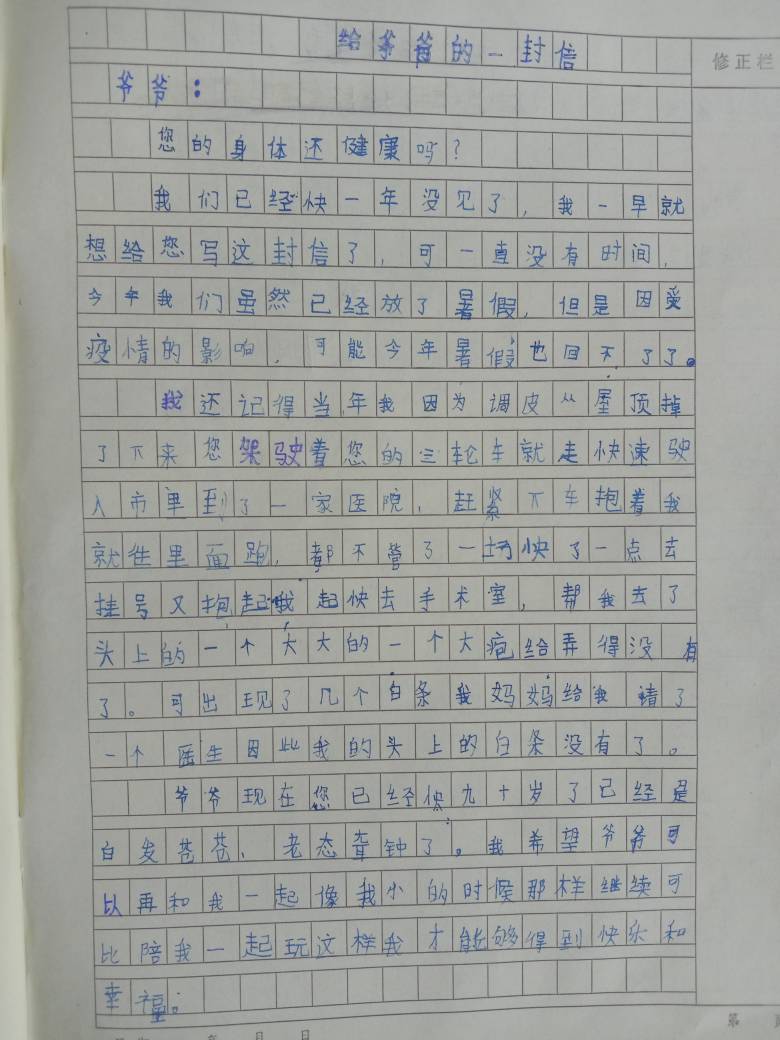 给爷爷的一封信
修正栏
爷爷：
您的身体还健康吗？
我们已经快一年没见了，我一早就
想给您写这封信了，可一直没有时间，
今年我们虽然已经放了暑假，但是因受
疫情的影响，可能今年暑假也回不了了。
我还记得当年我因为调皮从屋顶掉
了下来您架驶着您的三轮车就走快速驶
入市里到了一家医院，赶紧下车抱着我
就往里面跑，都不管了一场快了一点去
挂号又抱起我起快去手术室，帮我去了
头上的一个大大的一个大疱给弄得没有
了。可出现了几个白条我妈妈给我请了
一个医生因此我的头上的白条没有了。
爷爷现在您已经快九十岁了已经是
白发苍苍、老态聋钟了。我希望爷爷可
以再和我一起像我小的时候那样继续可
比陪我一起玩这样我才能够得到快乐和
幸福。
年 月 日
第